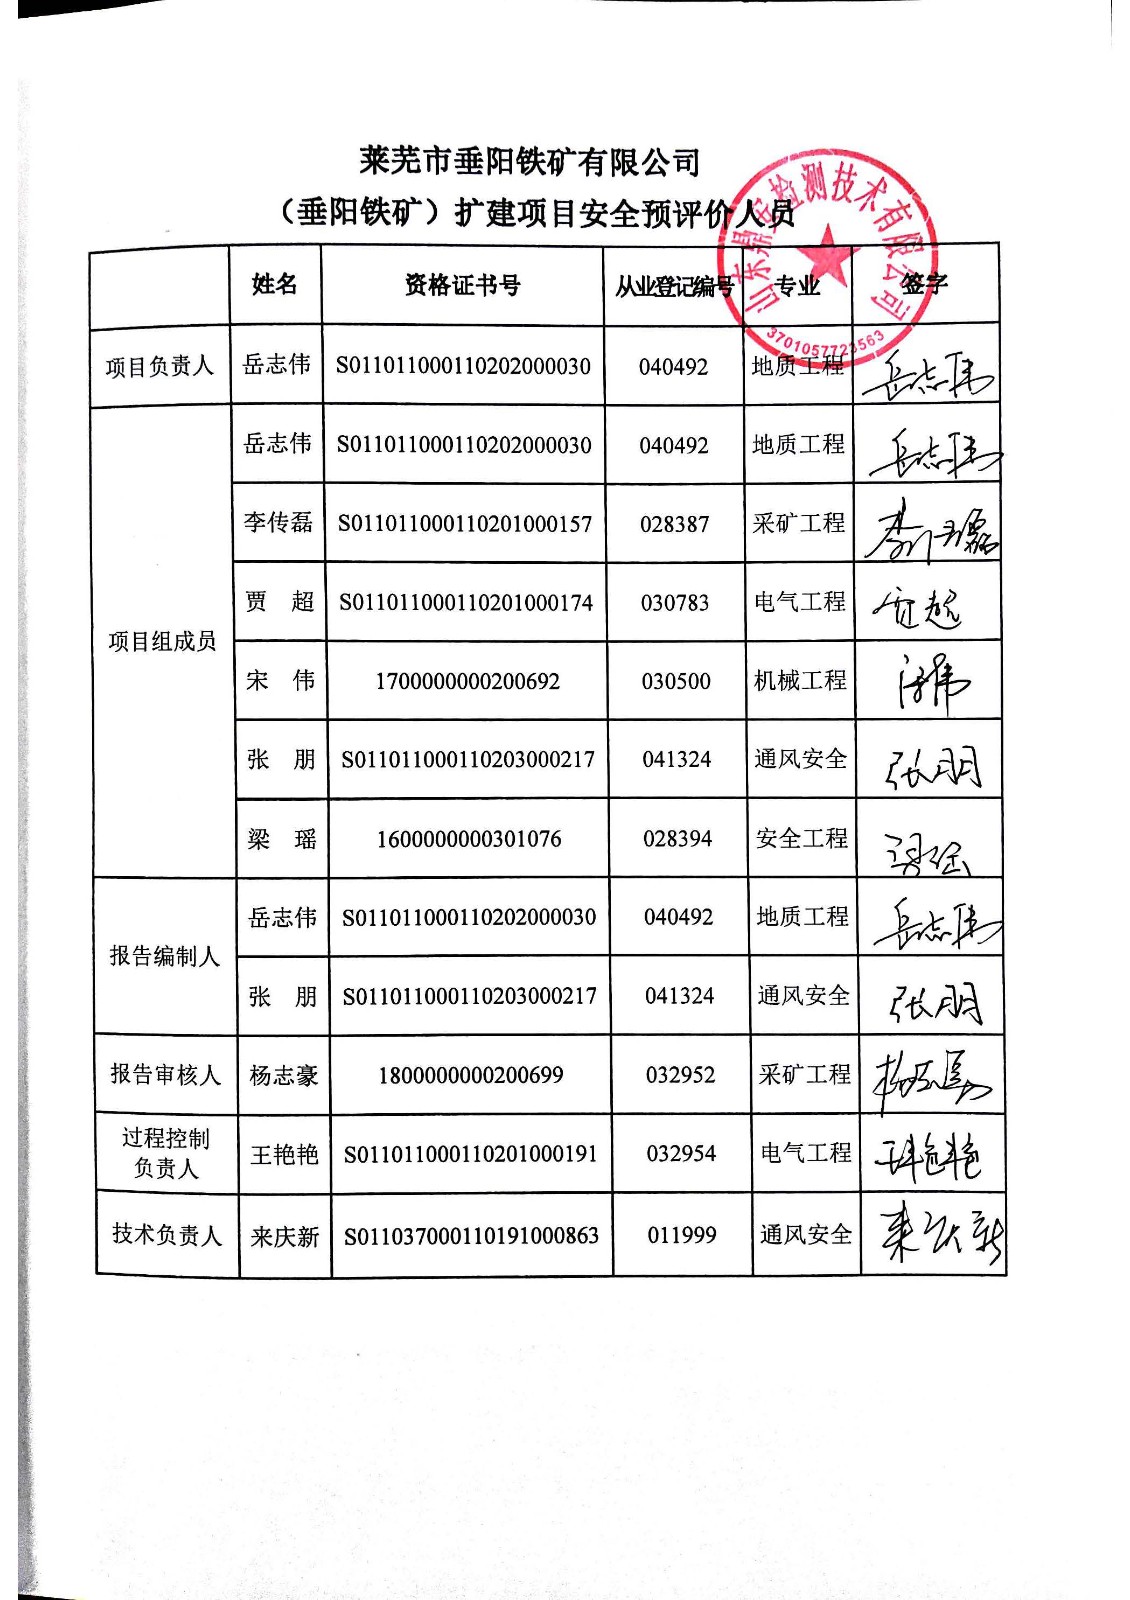 莱芜市垂阳铁矿有限公司
（垂阳铁矿）扩建项目安全预评价人员
山东鼎安检测技术有限公司
3701057723563
姓名 资格证书号 从业登记编号 专业 签字
项目负责人 岳志伟 S011011000110202000030 040492 地质工程 岳志伟
项目组成员
岳志伟 S011011000110202000030 040492 地质工程 岳志伟
李传磊 S011011000110201000157 028387 采矿工程 李传磊
贾 超 S011011000110201000174 030783 电气工程 贾超
宋 伟 1700000000200692 030500 机械工程 宋伟
张 朋 S011011000110203000217 041324 通风安全 张朋
梁 瑶 1600000000301076 028394 安全工程 梁瑶
报告编制人
岳志伟 S011011000110202000030 040492 地质工程 岳志伟
张 朋 S011011000110203000217 041324 通风安全 张朋
报告审核人 杨志豪 1800000000200699 032952 采矿工程 杨志豪
过程控制
负责人 王艳艳 S011011000110201000191 032954 电气工程 王艳艳
技术负责人 来庆新 S011037000110191000863 011999 通风安全 来庆新